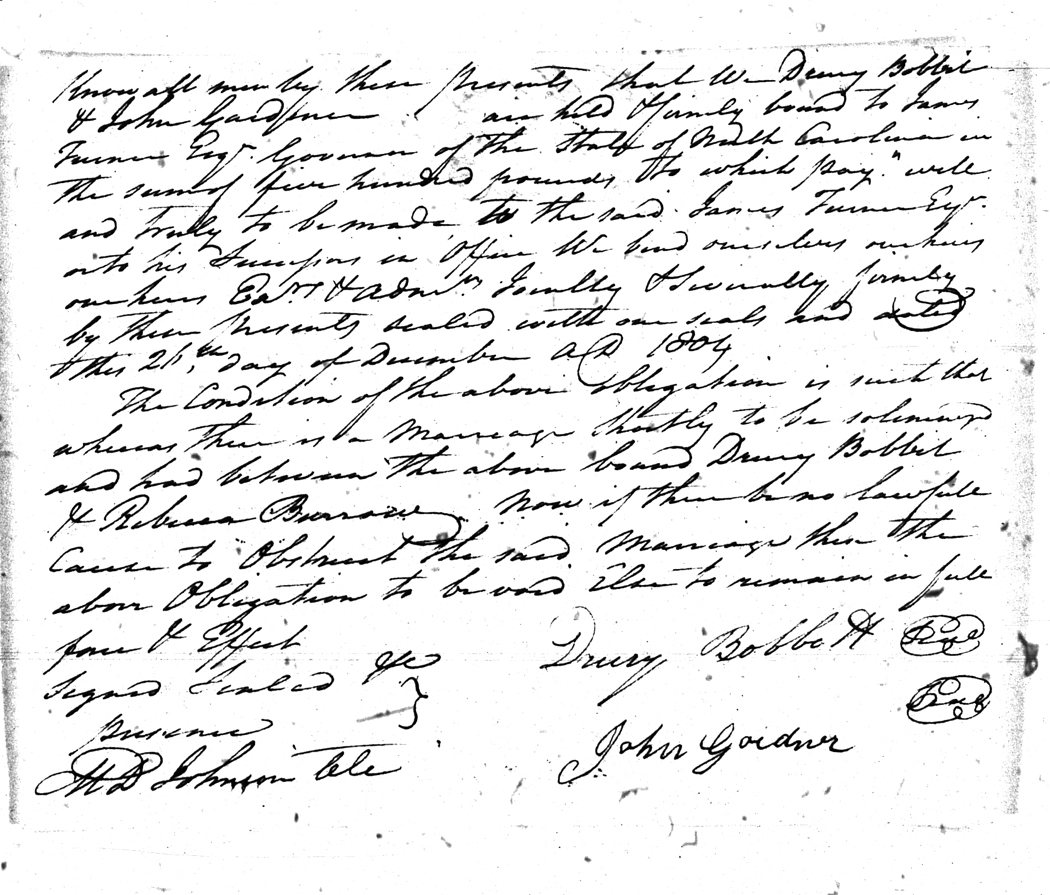 Know all men by these Presents that We Drury Bobbit
& John Gardner are held & firmly bound to James
Turner Esqr. Governor of the State of North Carolina in
the sum of five hundred pounds to which paymt. well
and truly to be made to the said James Turner Esqr.
or to his Successors in Office We bind ourselves our heirs
our heirs Exrs & Admrs Jointly & Severally firmly
by these Presents sealed with our seals and dated
this 21st day of December AD 1804
The Condition of the above obligation is such that
whereas there is a Marriage Shortly to be solemnized
and had between the above bound Drury Bobbit
& Rebecca Burrow Now if there be no lawfull
Cause to Obstruct the said Marriage then the
above Obligation to be void Else to remain in full
force & Effect
Signed Sealed &c
presence
Drury Bobbitt Seal
John Gardner Seal
M D Johnson